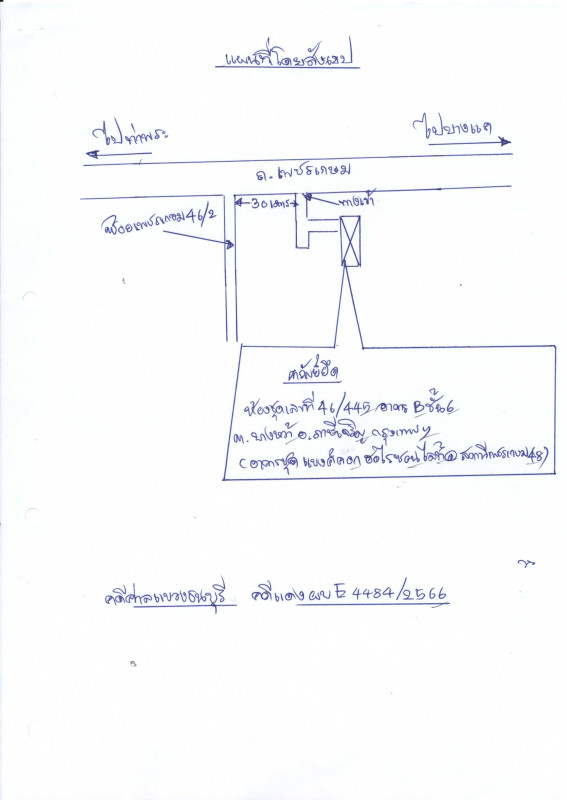 แผนที่โดยสังเขป
ไปท่าพระ
ไปบางแค
ถ.เพชรเกษม
30 เมตร
ทางเข้า
ซอยเพชรเกษม 46/2
ทรัพย์ยึด
ห้องชุดเลขที่ 46/445 อาคาร B ชั้น 6
ต.บางหว้า อ.ภาษีเจริญ กรุงเทพฯ
(อาคารชุด แบงค์คอก ฮอไรซอน ไลท์ @ สถานีเพชรเกษม 48)
คดีศาลแขวงธนบุรี คดีแดง ผบE 4484/2566